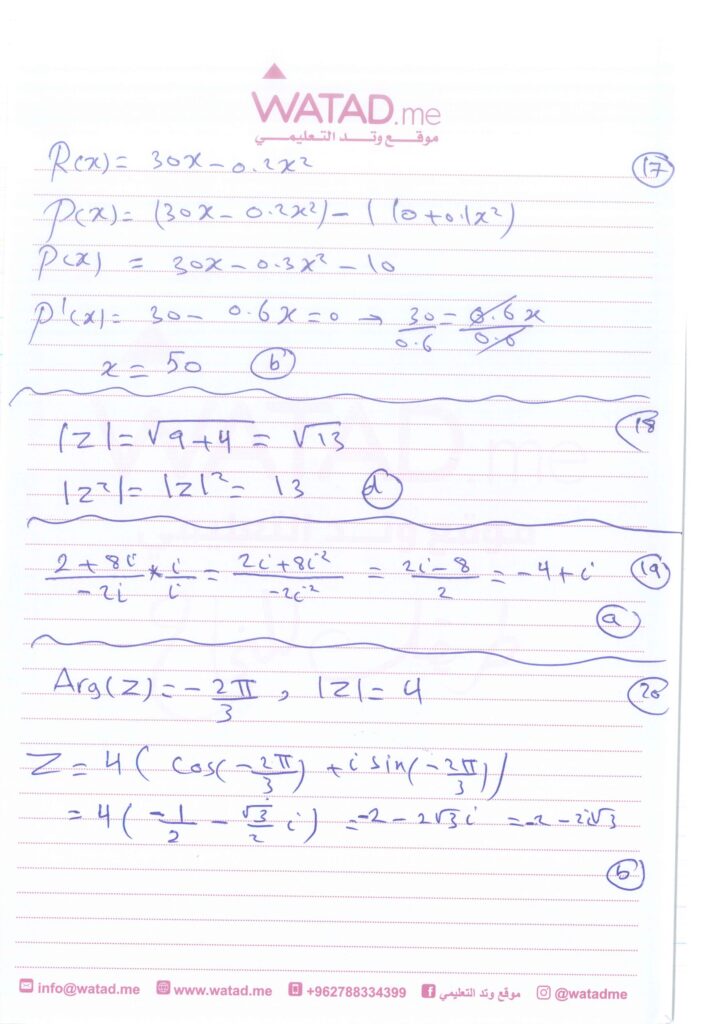 WATAD.me
موقع وتد التعليمي
R(x) = 30x - 0.2x² (17)
P(x) = (30x - 0.2x²) - (10 + 0.1x²)
P(x) = 30x - 0.3x² - 10
P'(x) = 30 - 0.6x = 0 → 30/0.6 = 0.6x/0.6
x = 50 (b)
|z| = √9+4 = √13 (18)
|z²| = |z|² = 13 (d)
2+8i/-2i * i/i = 2i+8i²/-2i² = 2i-8/2 = -4+i (19)
(a)
Arg(z) = -2π/3 , |z| = 4 (20)
Z = 4( cos(-2π/3) + i sin(-2π/3))
= 4( -1/2 - √3/2 i) = -2 - 2√3 i = -2 - 2i√3
(b)
info@watad.me www.watad.me +962788334399 موقع وتد التعليمي @watadme